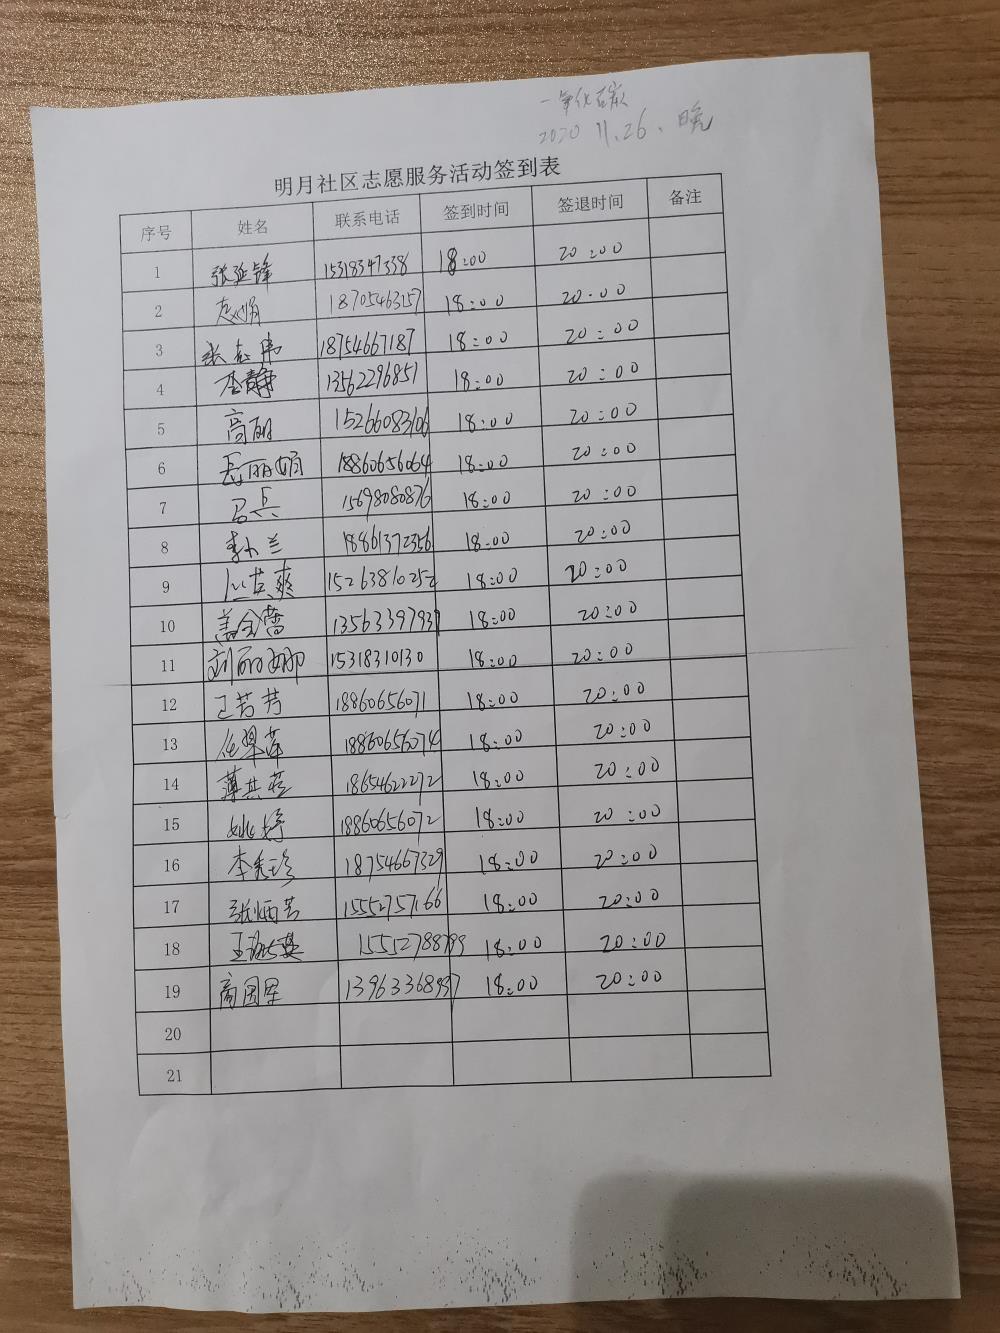 一氧化碳
2020 11.26. 晚
明月社区志愿服务活动签到表
序号 姓名 联系电话 签到时间 签退时间 备注
1 张延锋 15318347338 18:00 20:00
2 赵娟 18705463157 18:00 20:00
3 张志伟 18754667187 18:00 20:00
4 李静 13562296851 18:00 20:00
5 高丽 15266083106 18:00 20:00
6 岳丽娟 18860656064 18:00 20:00
7 吕兵 1569080876 18:00 20:00
8 李小兰 18861372356 18:00 20:00
9 18:00 20:00
10 盖会蕾 13563397937 18:00 20:00
11 刘丽娜 15318310130 18:00 20:00
12 王芳芳 18860656071 18:00 20:00
13 任翠萍 18860656074 18:00 20:00
14 薄其芹 18654622272 18:00 20:00
15 姚婷 18860656072 18:00 20:00
16 李秀珍 18754667329 18:00 20:00
17 张炳芳 15552757166 18:00 20:00
18 15552788799 18:00 20:00
19 商国军 13963368937 18:00 20:00
20
21